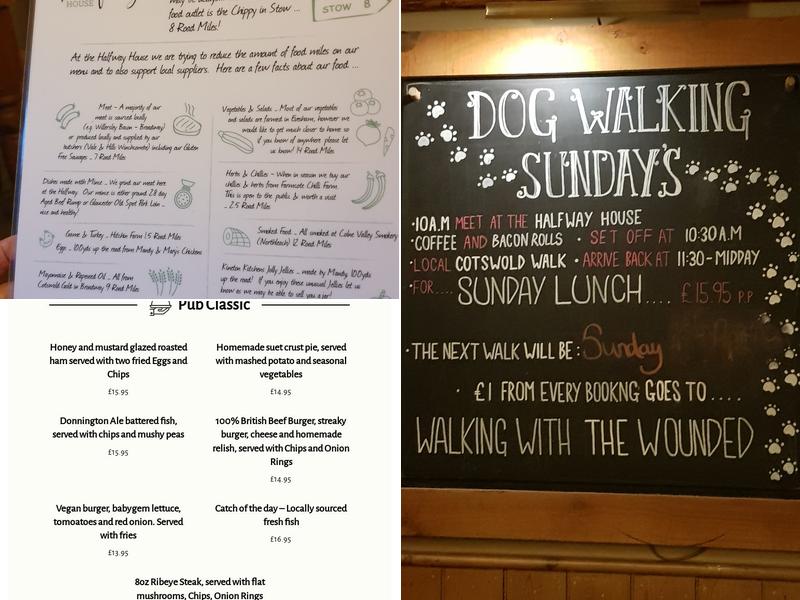 HOUSE
food outlet is the Chippy in Stow ...
8 Road Miles!
STOW 8
At the Halfway House we are trying to reduce the amount of food miles on our
menu and to also support local suppliers. Here are a few facts about our food ...
Meat - A majority of our
meat is sourced locally
(e.g. Willersley Bacon - Broadway)
or produced locally and supplied by our
butchers (Vale & Hills Winchcombe) including our Gluten
Free Sausages .. 7 Road Miles
Dishes made with Mince .. We grind our meat here
at the Halfway. Our mince is either ground 28 day
Aged Beef Rump or Gloucester Old Spot Pork Loin ..
nice and healthy!
Game & Turkey .. Hitchin Farm 1.5 Road Miles
Eggs .. 100yds up the road from Mandy & Mary's Chickens
Mayonnaise & Rapeseed Oil .. All from
Cotswold Gold in Broadway 9 Road Miles
Vegetables & Salads .. Most of our vegetables
and salads are farmed in Evesham, however we
would like to get much closer to home so
if you know of anywhere please let
us know! 14 Road Miles
Herbs & Chillies - When in season we buy our
chillies & herbs from Farmcote Chilli Farm.
This is open to the public & worth a visit
.. 2.5 Road Miles
Smoked Food .. All smoked at Colne Valley Smokery
(Northleach) 12 Road Miles
Kineton Kitchens Jolly Jellies .. made by Mandy, 100yds
up the road! If you enjoy these unusual Jellies let us
know as we may be able to sell you a jar!
Pub Classic
Honey and mustard glazed roasted
ham served with two fried Eggs and
Chips
£15.95
Donnington Ale battered fish,
served with chips and mushy peas
£15.95
Vegan burger, babygem lettuce,
tomoatoes and red onion. Served
with fries
£13.95
Homemade suet crust pie, served
with mashed potato and seasonal
vegetables
£14.95
100% British Beef Burger, streaky
burger, cheese and homemade
relish, served with Chips and Onion
Rings
£14.95
Catch of the day – Locally sourced
fresh fish
£16.95
8oz Ribeye Steak, served with flat
mushrooms, Chips, Onion Rings
DOG WALKING
SUNDAY'S
•10A.M MEET AT THE HALFWAY HOUSE
•COFFEE AND BACON ROLLS • SET OFF AT 10:30A.M
•LOCAL COTSWOLD WALK • ARRIVE BACK AT 11:30-MIDDAY
•FOR.... SUNDAY LUNCH.... £15.95 P.P
•THE NEXT WALK WILL BE: Sunday
• £1 FROM EVERY BOOKNG GOES TO ....
WALKING WITH THE WOUNDED